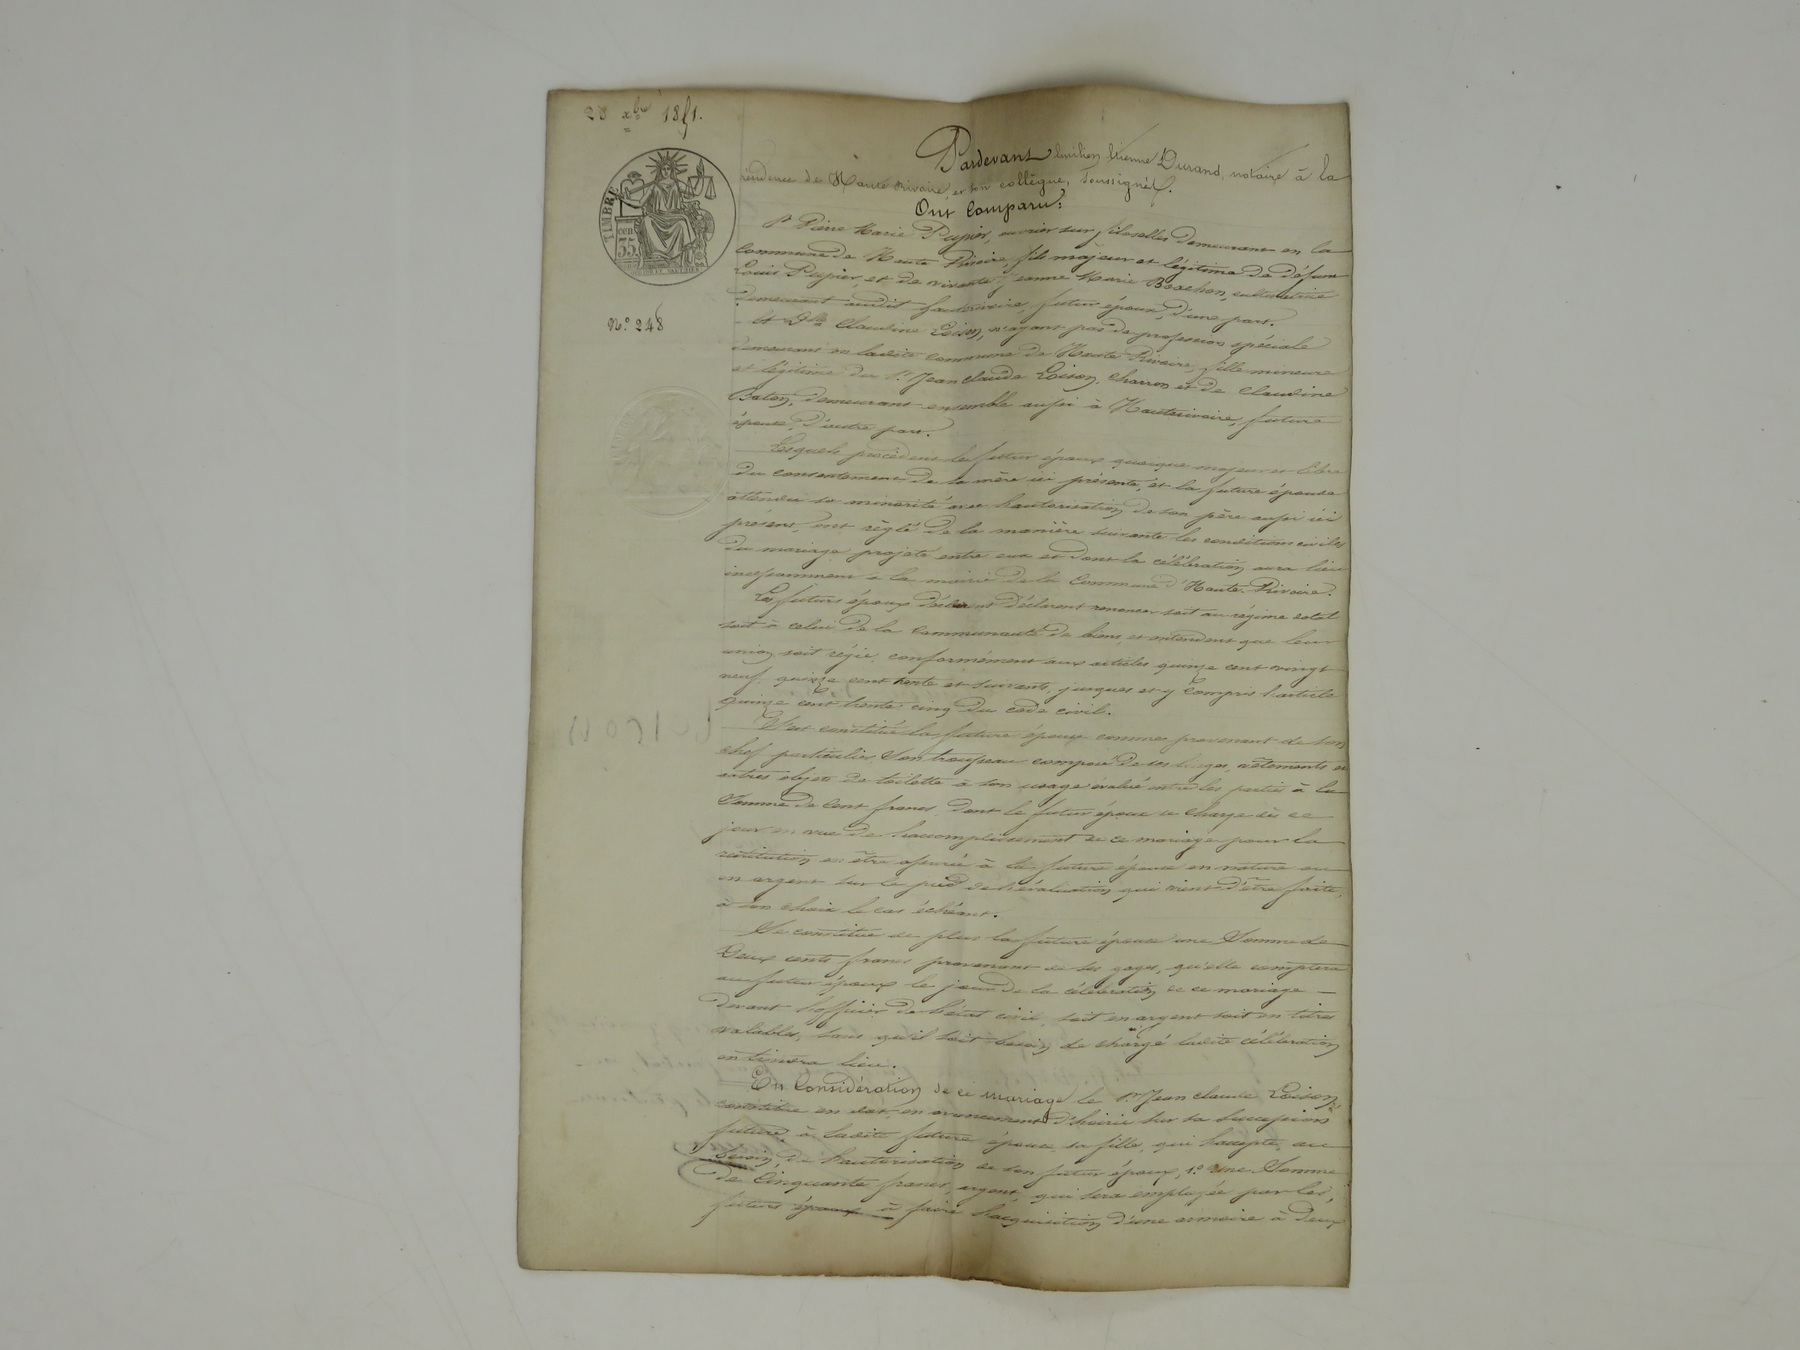 23 xbre 1851.
TIMBRE
cen
35
N.º 248
Pardevant Emilien Etienne Durand, notaire à la
résidence de Haute Rivoire et son collègue, soussignés.
Ont Comparu:
Sr Pierre Marie Pupier, ouvrier sur filoselles demeurant en la
Commune de Haute Rivoire, fils majeur et légitime de défunt
Louis Pupier, et de vivante Jeanne Marie cultivatrice
demeurant audit hauterivoire, futur époux, d'une part.
Et Dlle Claudine Loison, n'ayant pas de profession spéciale
demeurant en ladite commune de Haute Rivoire, fille mineure
et légitime du Sr Jean Claude Loison, charron et de Claudine
demeurant ensemble aussi à Hauterivoire, future
épouse, d'autre part.
Lesquels procédant le futur époux quoique majeur et libre
du consentement de sa mère ici présente, et la future épouse
attendu sa minorité avec hauterisation de son père aussi ici
présent, ont règlé de la manière suivante les conditions civiles
du mariage projeté entre eux et dont la célébration aura lieu
incessamment à la mairie de la Commune d'Haute-Rivoire.
Les futurs époux déclarent renoncer soit au régime dotal
soit à celui de la communauté de biens, et entendent que leur
union soit régie conformément aux articles quinze cent vingt
neuf, quinze cent trente et suivants, jusques et y compris l'article
quinze cent trente cinq du code civil.
S'est constitué la future épouse comme provenant de son
chef particulier, son trousseau composé de ses linges, vêtements et
autres objets de toilette à son usage évalué entre les parties à la
Somme de Cent francs, dont le futur époux se charge dès ce
jour en vue de l'accomplissement de ce mariage pour la
restitution en être assurée à la future épouse en nature ou
en argent sur le pied de l'évaluation qui vient d'être faite,
à son choix le cas échéant.
Se constitue de plus la future épouse une Somme de
Deux cents francs provenant de ses gages, qu'elle comptera
au futur époux le jour de la célébration de ce mariage
devant l'officier de l'état civil, soit en argent soit en titres
valables, sans qu'il soit besoin de chargé ladite célébration
en tiendra lieu.
En Considération de ce mariage le Sr Jean Claude Loison
constitue en dot, en avancement d'hoirie sur sa succession
future, à ladite future épouse sa fille, qui l'accepte, au
besoin, de l'hauterisation de son futur époux, 1.º Une Somme
de Cinquante francs, argent, qui sera employée par les
futurs époux à faire l'acquisition d'une armoire à deux